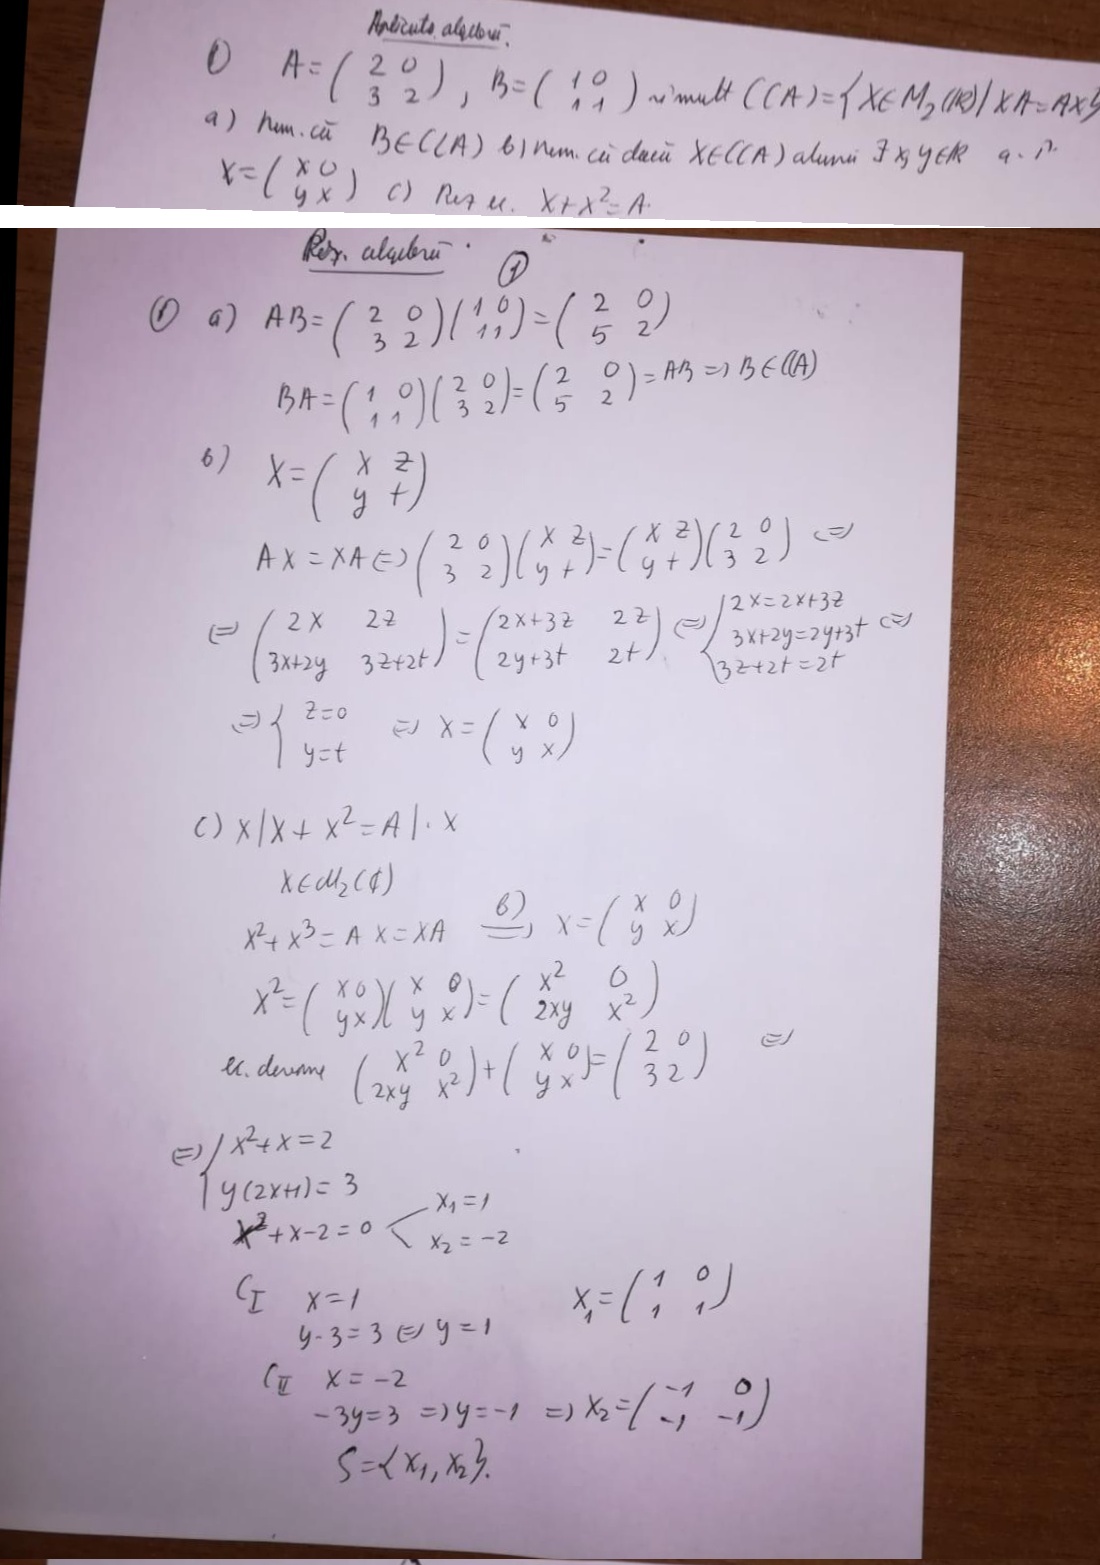 Aplicație algebră.
① A=(2 0 / 3 2), B=(1 0 / 1 1) și mult C(A)={X∈M₂(ℝ)/XA=AX}
a) Dem. că B∈C(A) b) Dem. că dacă X∈C(A) atunci ∃ x,y∈ℝ a.î.
X=(x 0 / y x) c) Rez ec. X+X²=A.
Rez. algebră.
①
① a) AB=(2 0 / 3 2)(1 0 / 1 1)=(2 0 / 5 2)
BA=(1 0 / 1 1)(2 0 / 3 2)=(2 0 / 5 2)=AB => B∈C(A)
b) X=(x z / y t)
AX=XA <=> (2 0 / 3 2)(x z / y t)=(x z / y t)(2 0 / 3 2) <=>
<=> (2x 2z / 3x+2y 3z+2t)=(2x+3z 2z / 2y+3t 2t) <=> {2x=2x+3z / 3x+2y=2y+3t / 3z+2t=2t <=>
<=> {z=0 / y=t <=> X=(x 0 / y x)
c) X/X+X²=A/·X
X∈M₂(ℂ)
X²+X³=AX=XA =b)=> X=(x 0 / y x)
X²=(x 0 / y x)(x 0 / y x)=(x² 0 / 2xy x²)
ec. devine (x² 0 / 2xy x²)+(x 0 / y x)=(2 0 / 3 2) <=>
<=> {x²+x=2
y(2x+1)=3
x²+x-2=0 < x₁=1
x₂=-2
C I x=1 X₁=(1 0 / 1 1)
y·3=3 <=> y=1
C II x=-2
-3y=3 => y=-1 => X₂=(-1 0 / -1 -1)
S={X₁,X₂}.